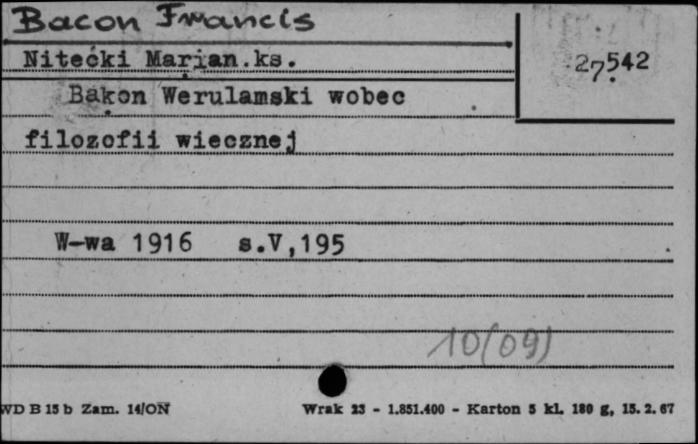 Bacon Francis
Nitecki Marian.ks.
27542
Bakon Werulamski wobec
filozofii wiecznej
W-wa 1916 s.V,195
10(09)
WD B 15 b Zam. 14/ON Wrak 23 - 1.851.400 - Karton 5 kl. 180 g, 15. 2. 67